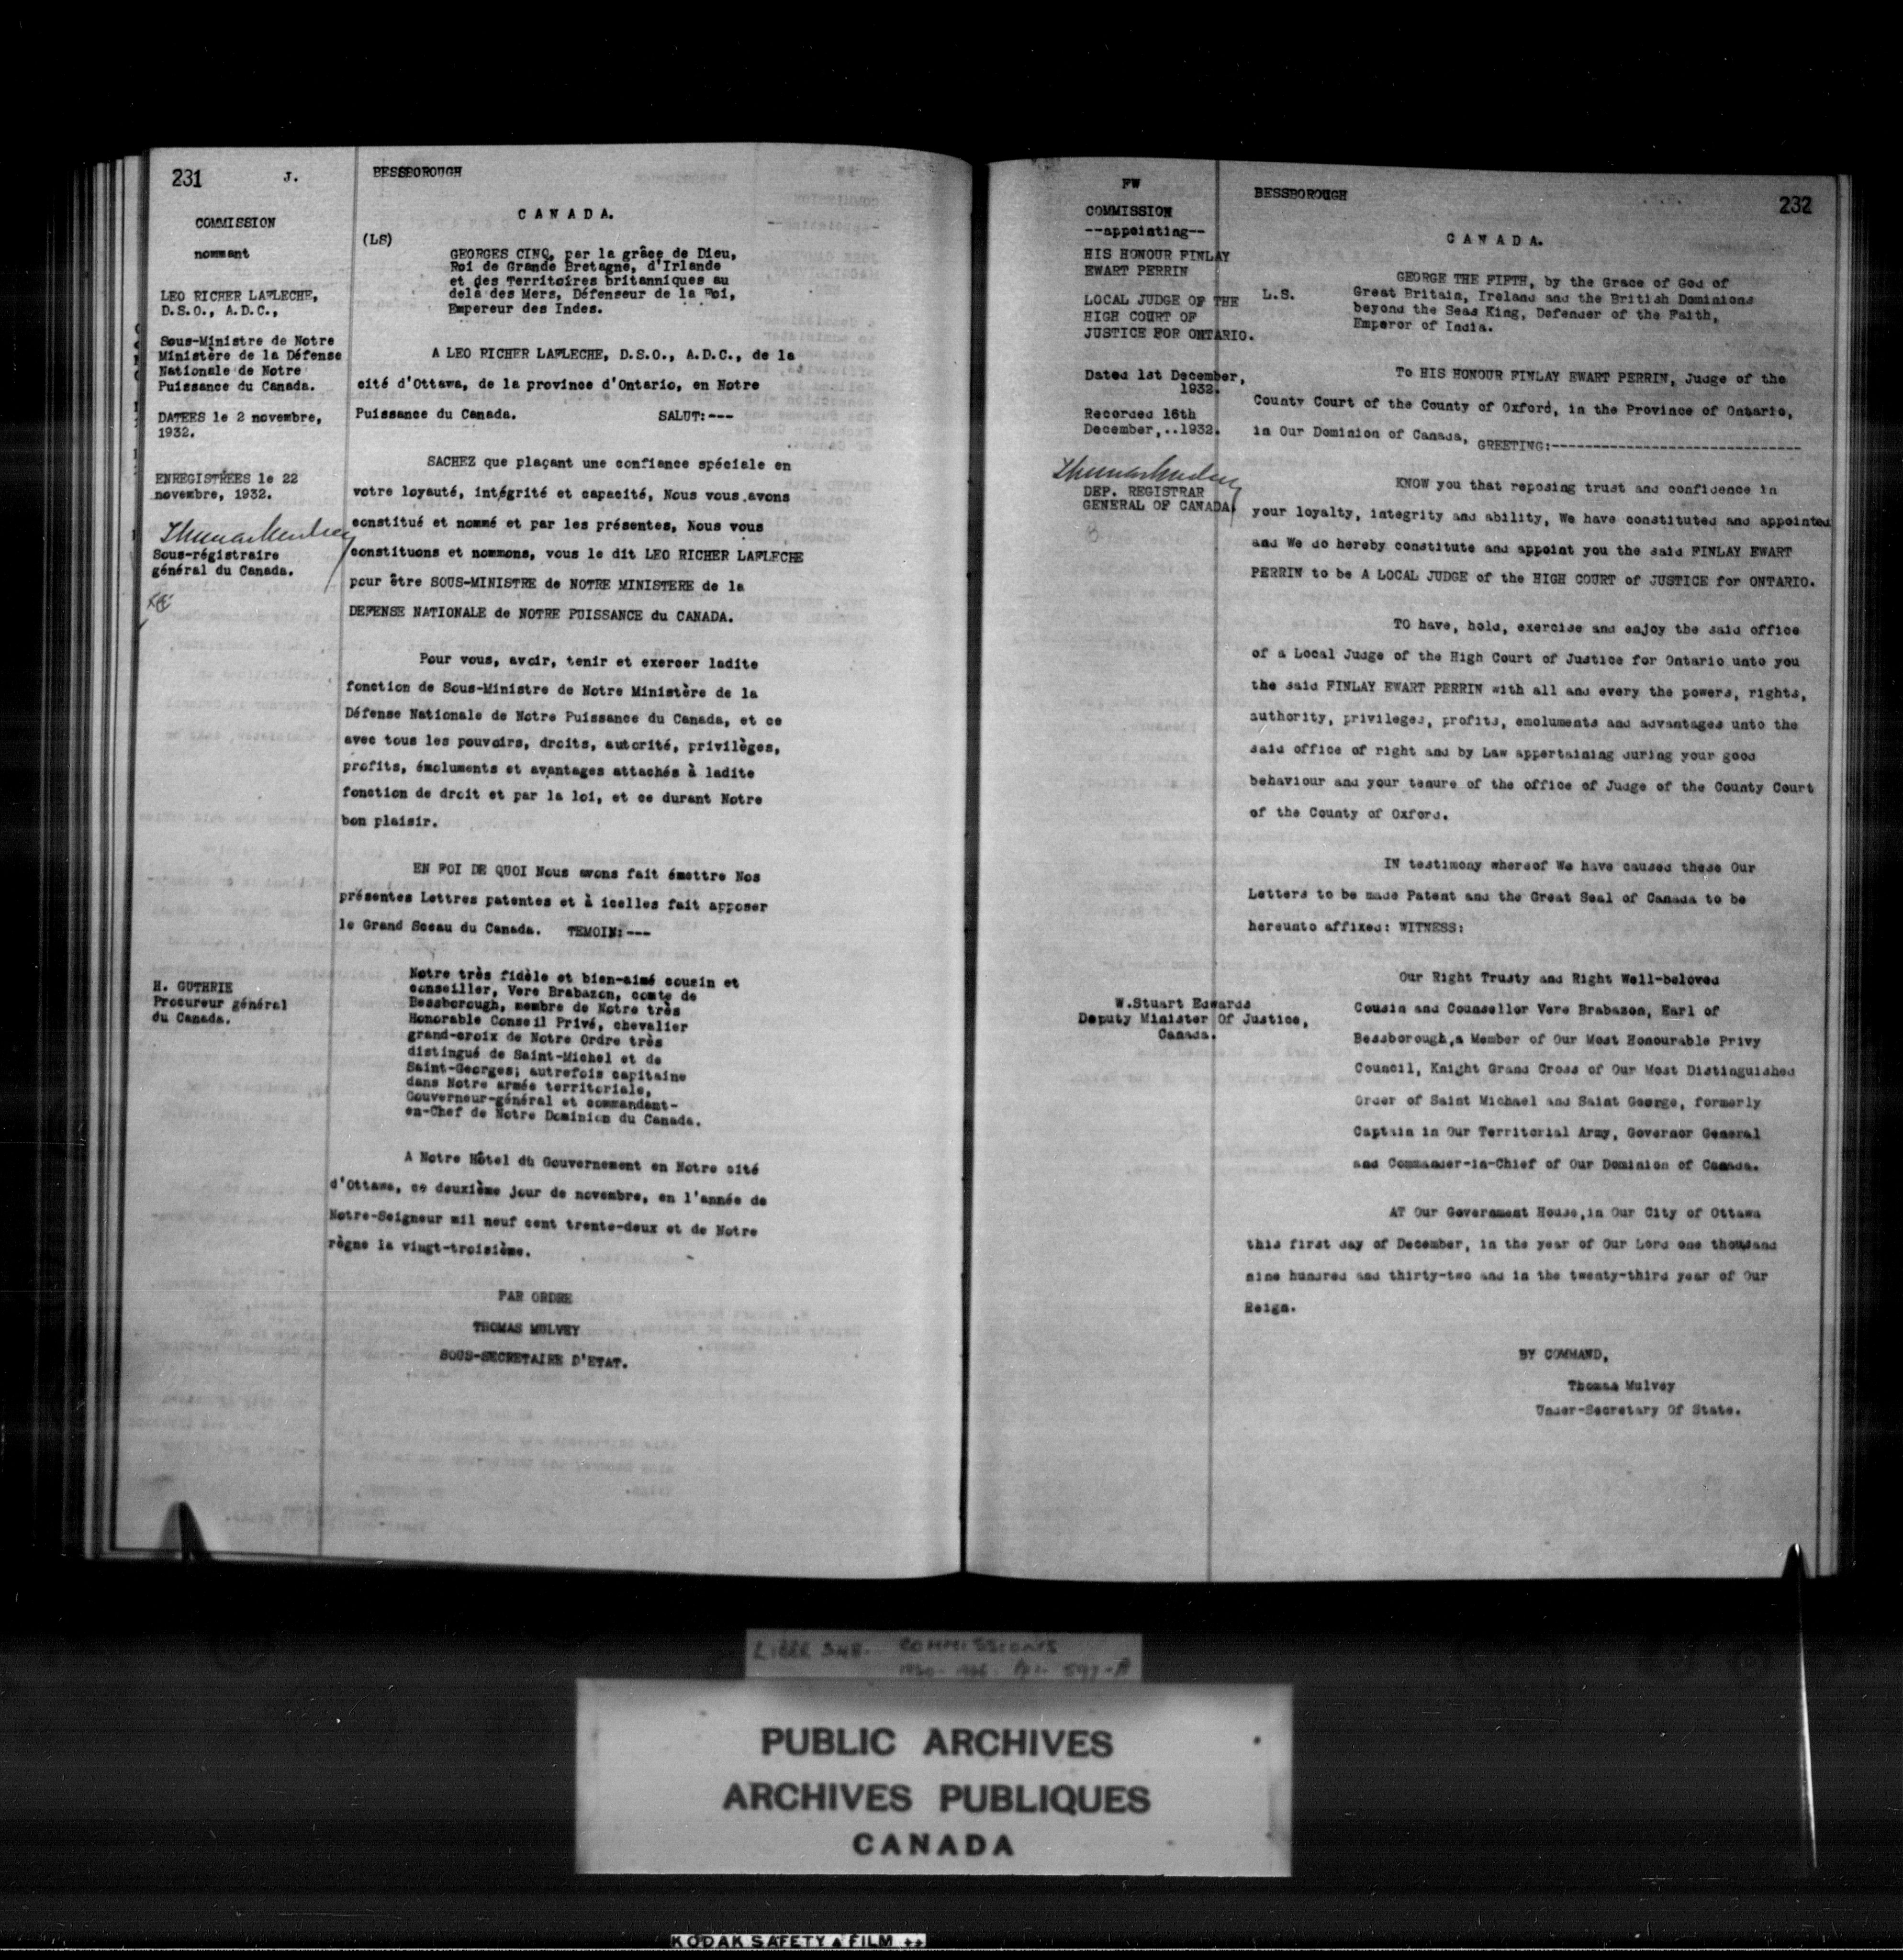 231
J.
COMMISSION
nommant
LEO RICHER LAFLECHE,
D.S.O., A.D.C.,
Sous-Ministre de Notre
Ministère de la Défense
Nationale de Notre
Puissance du Canada.
DATEES le 2 novembre,
1932.
ENREGISTRÉES le 22
novembre, 1932.
Sous-régistraire
général du Canada.
H. GUTHRIE
Procureur général
du Canada.
BESSBOROUGH
CANADA.
(LS)
GEORGES CINQ, par la grâce de Dieu,
Roi de Grande Bretagne, d'Irlande
et des Territoires britanniques au
delà des Mers, Défenseur de la Foi,
Empereur des Indes.
A LEO RICHER LAFLECHE, D.S.O., A.D.C., de la
cité d'Ottawa, de la province d'Ontario, en Notre
Puissance du Canada. SALUT:---
SACHEZ que plaçant une confiance spéciale en
votre loyauté, intégrité et capacité, Nous vous avons
constitué et nommé et par les présentes, Nous vous
constituons et nommons, vous le dit LEO RICHER LAFLECHE
pour être SOUS-MINISTRE de NOTRE MINISTERE de la
DEFENSE NATIONALE de NOTRE PUISSANCE du CANADA.
Pour vous, avoir, tenir et exercer ladite
fonction de Sous-Ministre de Notre Ministère de la
Défense Nationale de Notre Puissance du Canada, et ce
avec tous les pouvoirs, droits, autorité, privilèges,
profits, émoluments et avantages attachés à ladite
fonction de droit et par la loi, et ce durant Notre
bon plaisir.
EN FOI DE QUOI Nous avons fait émettre Nos
présentes Lettres patentes et à icelles fait apposer
le Grand Sceau du Canada. TEMOIN:---
Notre très fidèle et bien-aimé cousin et
conseiller, Vere Brabazon, comte de
Bessborough, membre de Notre très
Honorable Conseil Privé, chevalier
grand-croix de Notre Ordre très
distingué de Saint-Michel et de
Saint-Georges; autrefois capitaine
dans Notre armée territoriale,
Gouverneur-général et commandant-
en-Chef de Notre Dominion du Canada.
A Notre Hôtel du Gouvernement en Notre cité
d'Ottawa, ce deuxième jour de novembre, en l'année de
Notre-Seigneur mil neuf cent trente-deux et de Notre
règne la vingt-troisième.
PAR ORDRE
THOMAS MULVEY
SOUS-SECRETAIRE D'ETAT.
FW
COMMISSION
--appointing--
HIS HONOUR FINLAY
EWART PERRIN
LOCAL JUDGE OF THE
HIGH COURT OF
JUSTICE FOR ONTARIO.
Dated 1st December,
1932.
Recorded 16th
December,..1932.
DEP. REGISTRAR
GENERAL OF CANADA.
W.Stuart Edwards
Deputy Minister Of Justice,
Canada.
BESSBOROUGH
232
CANADA.
L.S.
GEORGE THE FIFTH, by the Grace of God of
Great Britain, Ireland and the British Dominions
beyond the Seas King, Defender of the Faith,
Emperor of India.
To HIS HONOUR FINLAY EWART PERRIN, Judge of the
County Court of the County of Oxford, in the Province of Ontario,
in Our Dominion of Canada, GREETING:------------------------------
KNOW you that reposing trust and confidence in
your loyalty, integrity and ability, We have constituted and appointed
and We do hereby constitute and appoint you the said FINLAY EWART
PERRIN to be A LOCAL JUDGE of the HIGH COURT of JUSTICE for ONTARIO.
TO have, hold, exercise and enjoy the said office
of a Local Judge of the High Court of Justice for Ontario unto you
the said FINLAY EWART PERRIN with all and every the powers, rights,
authority, privileges, profits, emoluments and advantages unto the
said office of right and by Law appertaining during your good
behaviour and your tenure of the office of Judge of the County Court
of the County of Oxford.
IN testimony whereof We have caused these Our
Letters to be made Patent and the Great Seal of Canada to be
hereunto affixed: WITNESS:
Our Right Trusty and Right Well-beloved
Cousin and Counsellor Vere Brabazon, Earl of
Bessborough,a Member of Our Most Honourable Privy
Council, Knight Grand Cross of Our Most Distinguished
Order of Saint Michael and Saint George, formerly
Captain in Our Territorial Army, Governor General
and Commander-in-Chief of Our Dominion of Canada.
AT Our Government House,in Our City of Ottawa
this first day of December, in the year of Our Lord one thousand
nine hundred and thirty-two and in the twenty-third year of Our
Reign.
BY COMMAND,
Thomas Mulvey
Under-Secretary Of State.
LIBER 348. COMMISSIONS
PUBLIC ARCHIVES
ARCHIVES PUBLIQUES
CANADA
KODAK SAFETY FILM